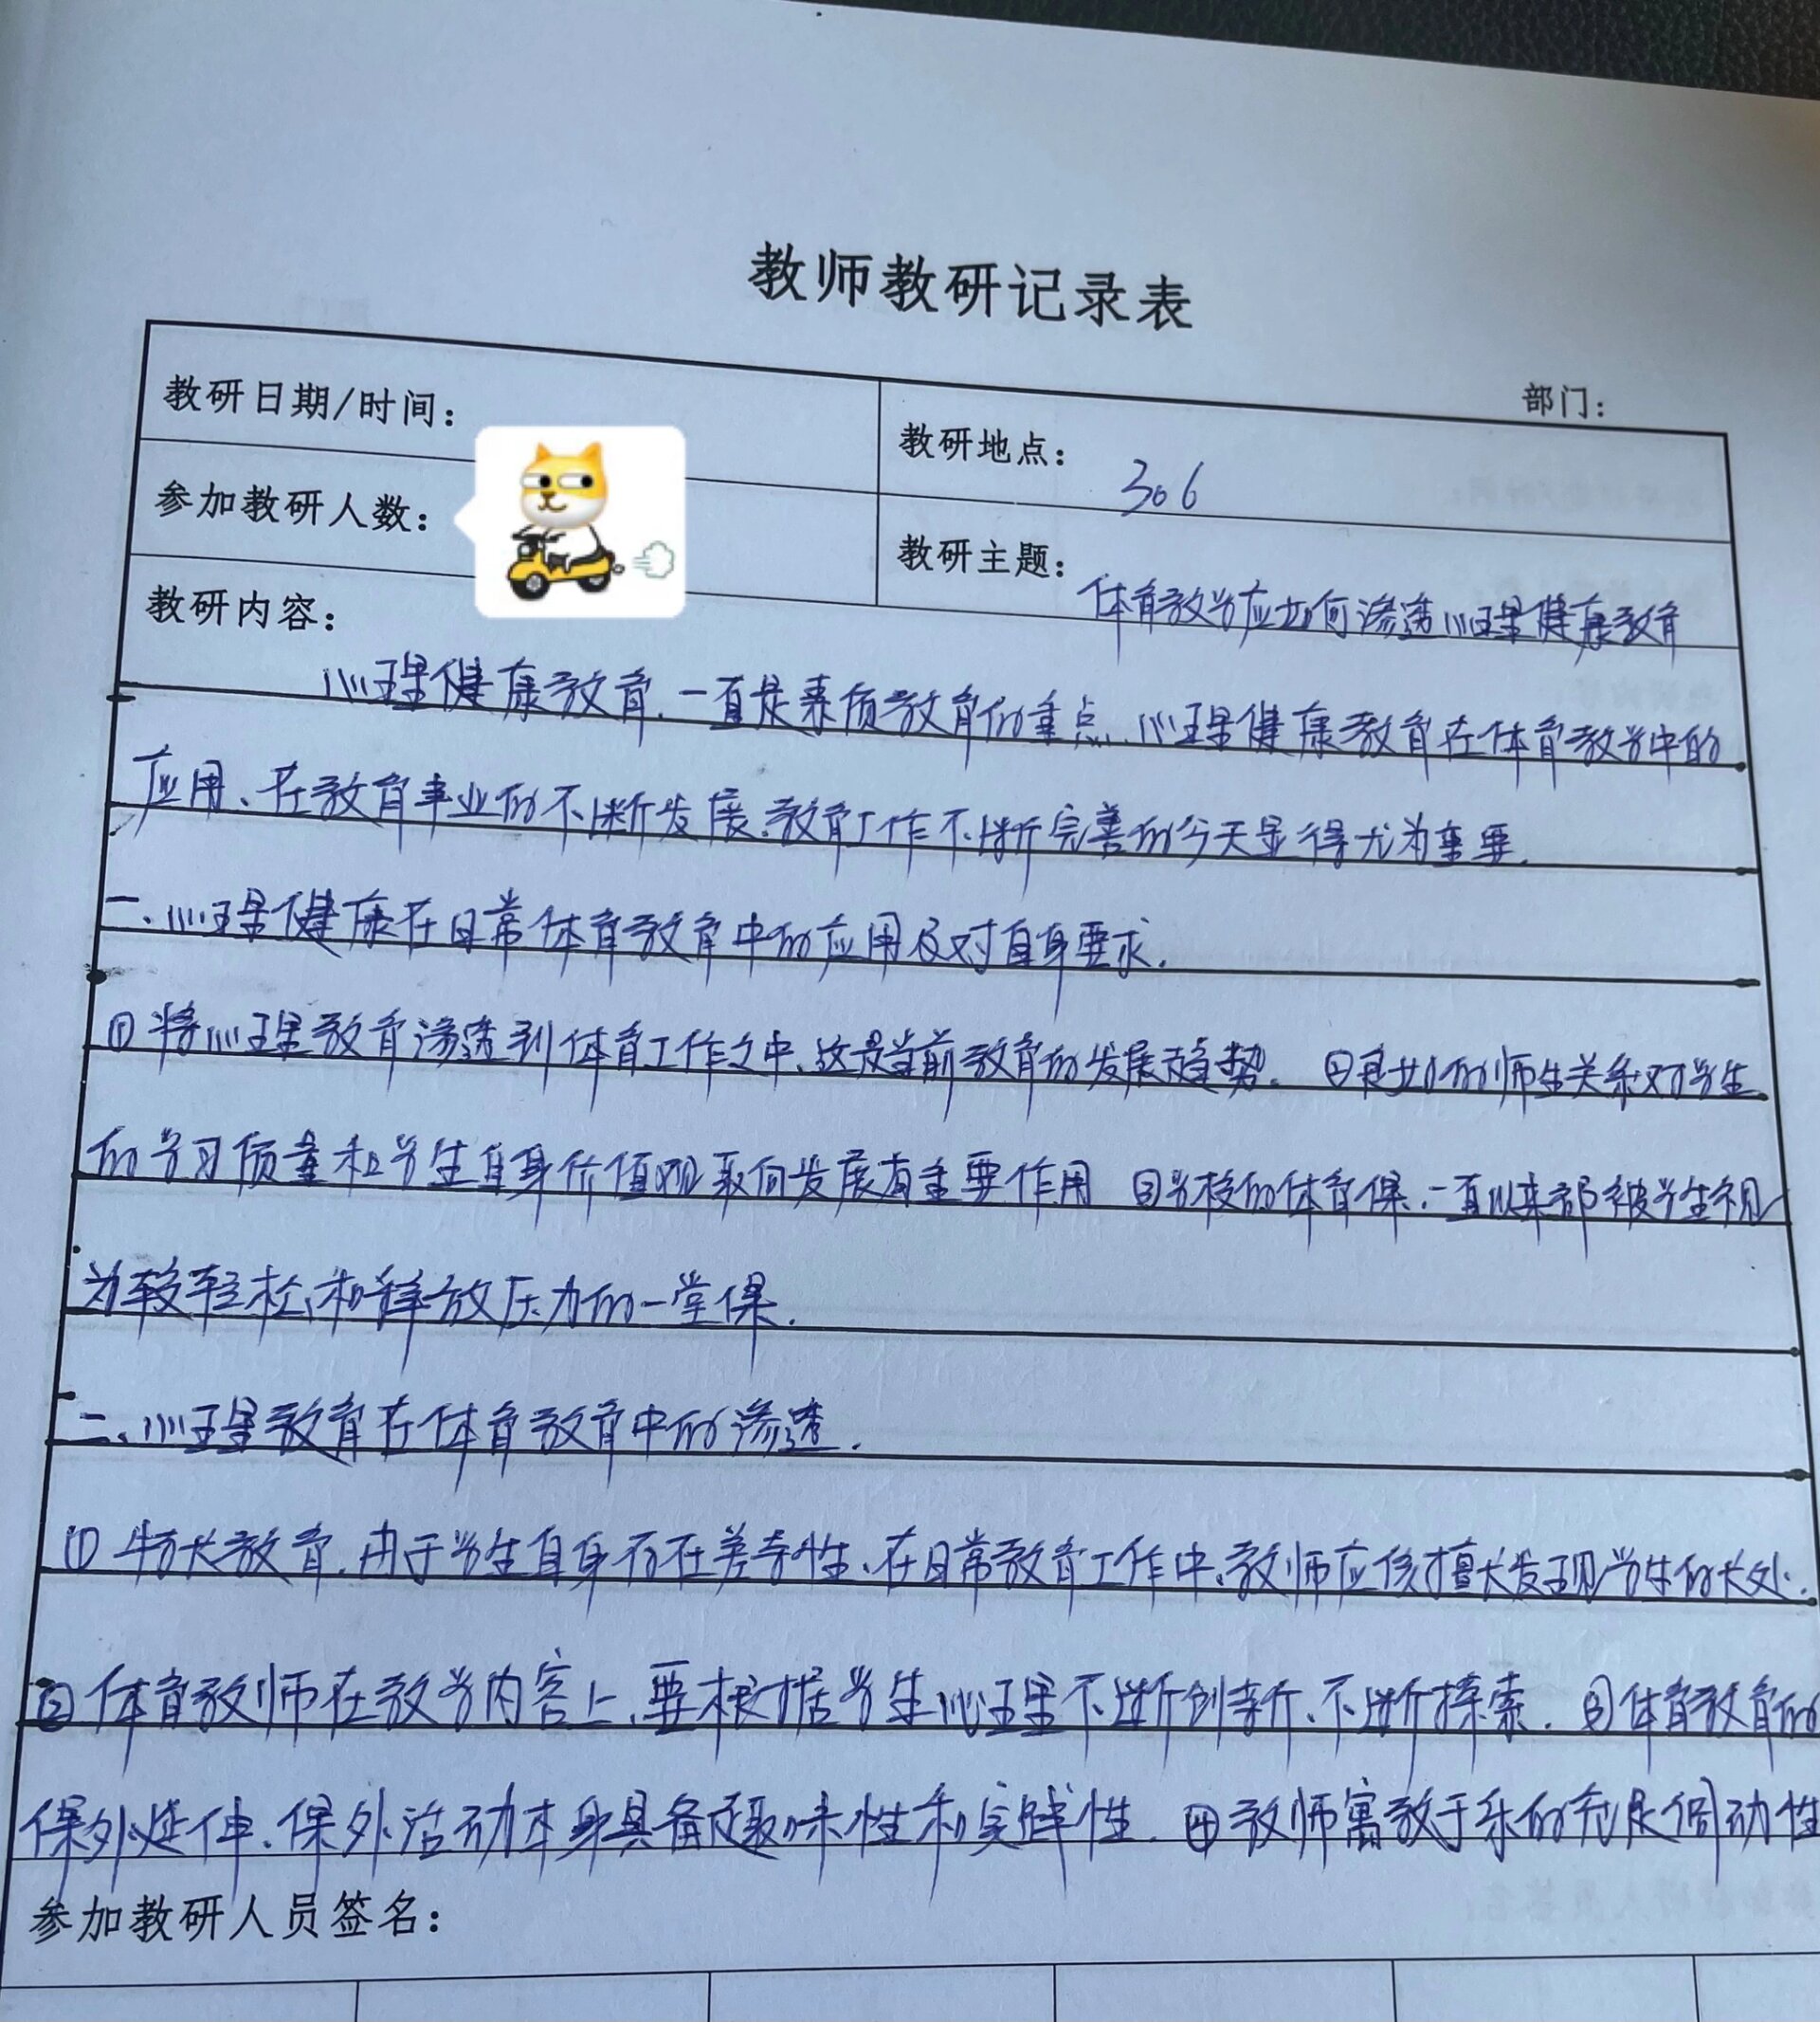 教师教研记录表
部门：
教研日期/时间：
教研地点：306
参加教研人数：
教研主题：体育教学应如何渗透心理健康教育
教研内容：
心理健康教育，一直是素质教育的重点，心理健康教育在体育教学中的
应用、在教育事业的不断发展、教育工作不断完善的今天显得尤为重要。
一、心理健康在日常体育教育中的应用及对自身要求。
①将心理教育渗透到体育工作之中、这是当前教育的发展趋势。②良好的师生关系对学生
的学习质量和学生自身价值观取向发展有重要作用 ③学校的体育课，一直以来都被学生视
为较轻松，和释放压力的一堂课。
二、心理教育在体育教育中的渗透。
①特长教育，由于学生自身存在差奇性、在日常教育工作中，教师应该擅长发现学生的长处。
②体育教师在教学内容上、要根据学生心理不断创新、不断探索。③体育教育的
课外延伸、课外活动本身具备趣味性和实践性。④教师寓教于乐的 调动性
参加教研人员签名：